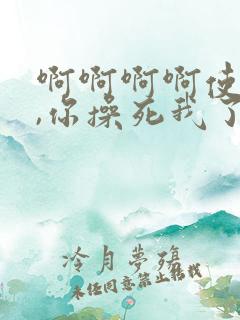 啊啊啊啊使
,你操死我了
冷月夢殤
未经同意禁止转载